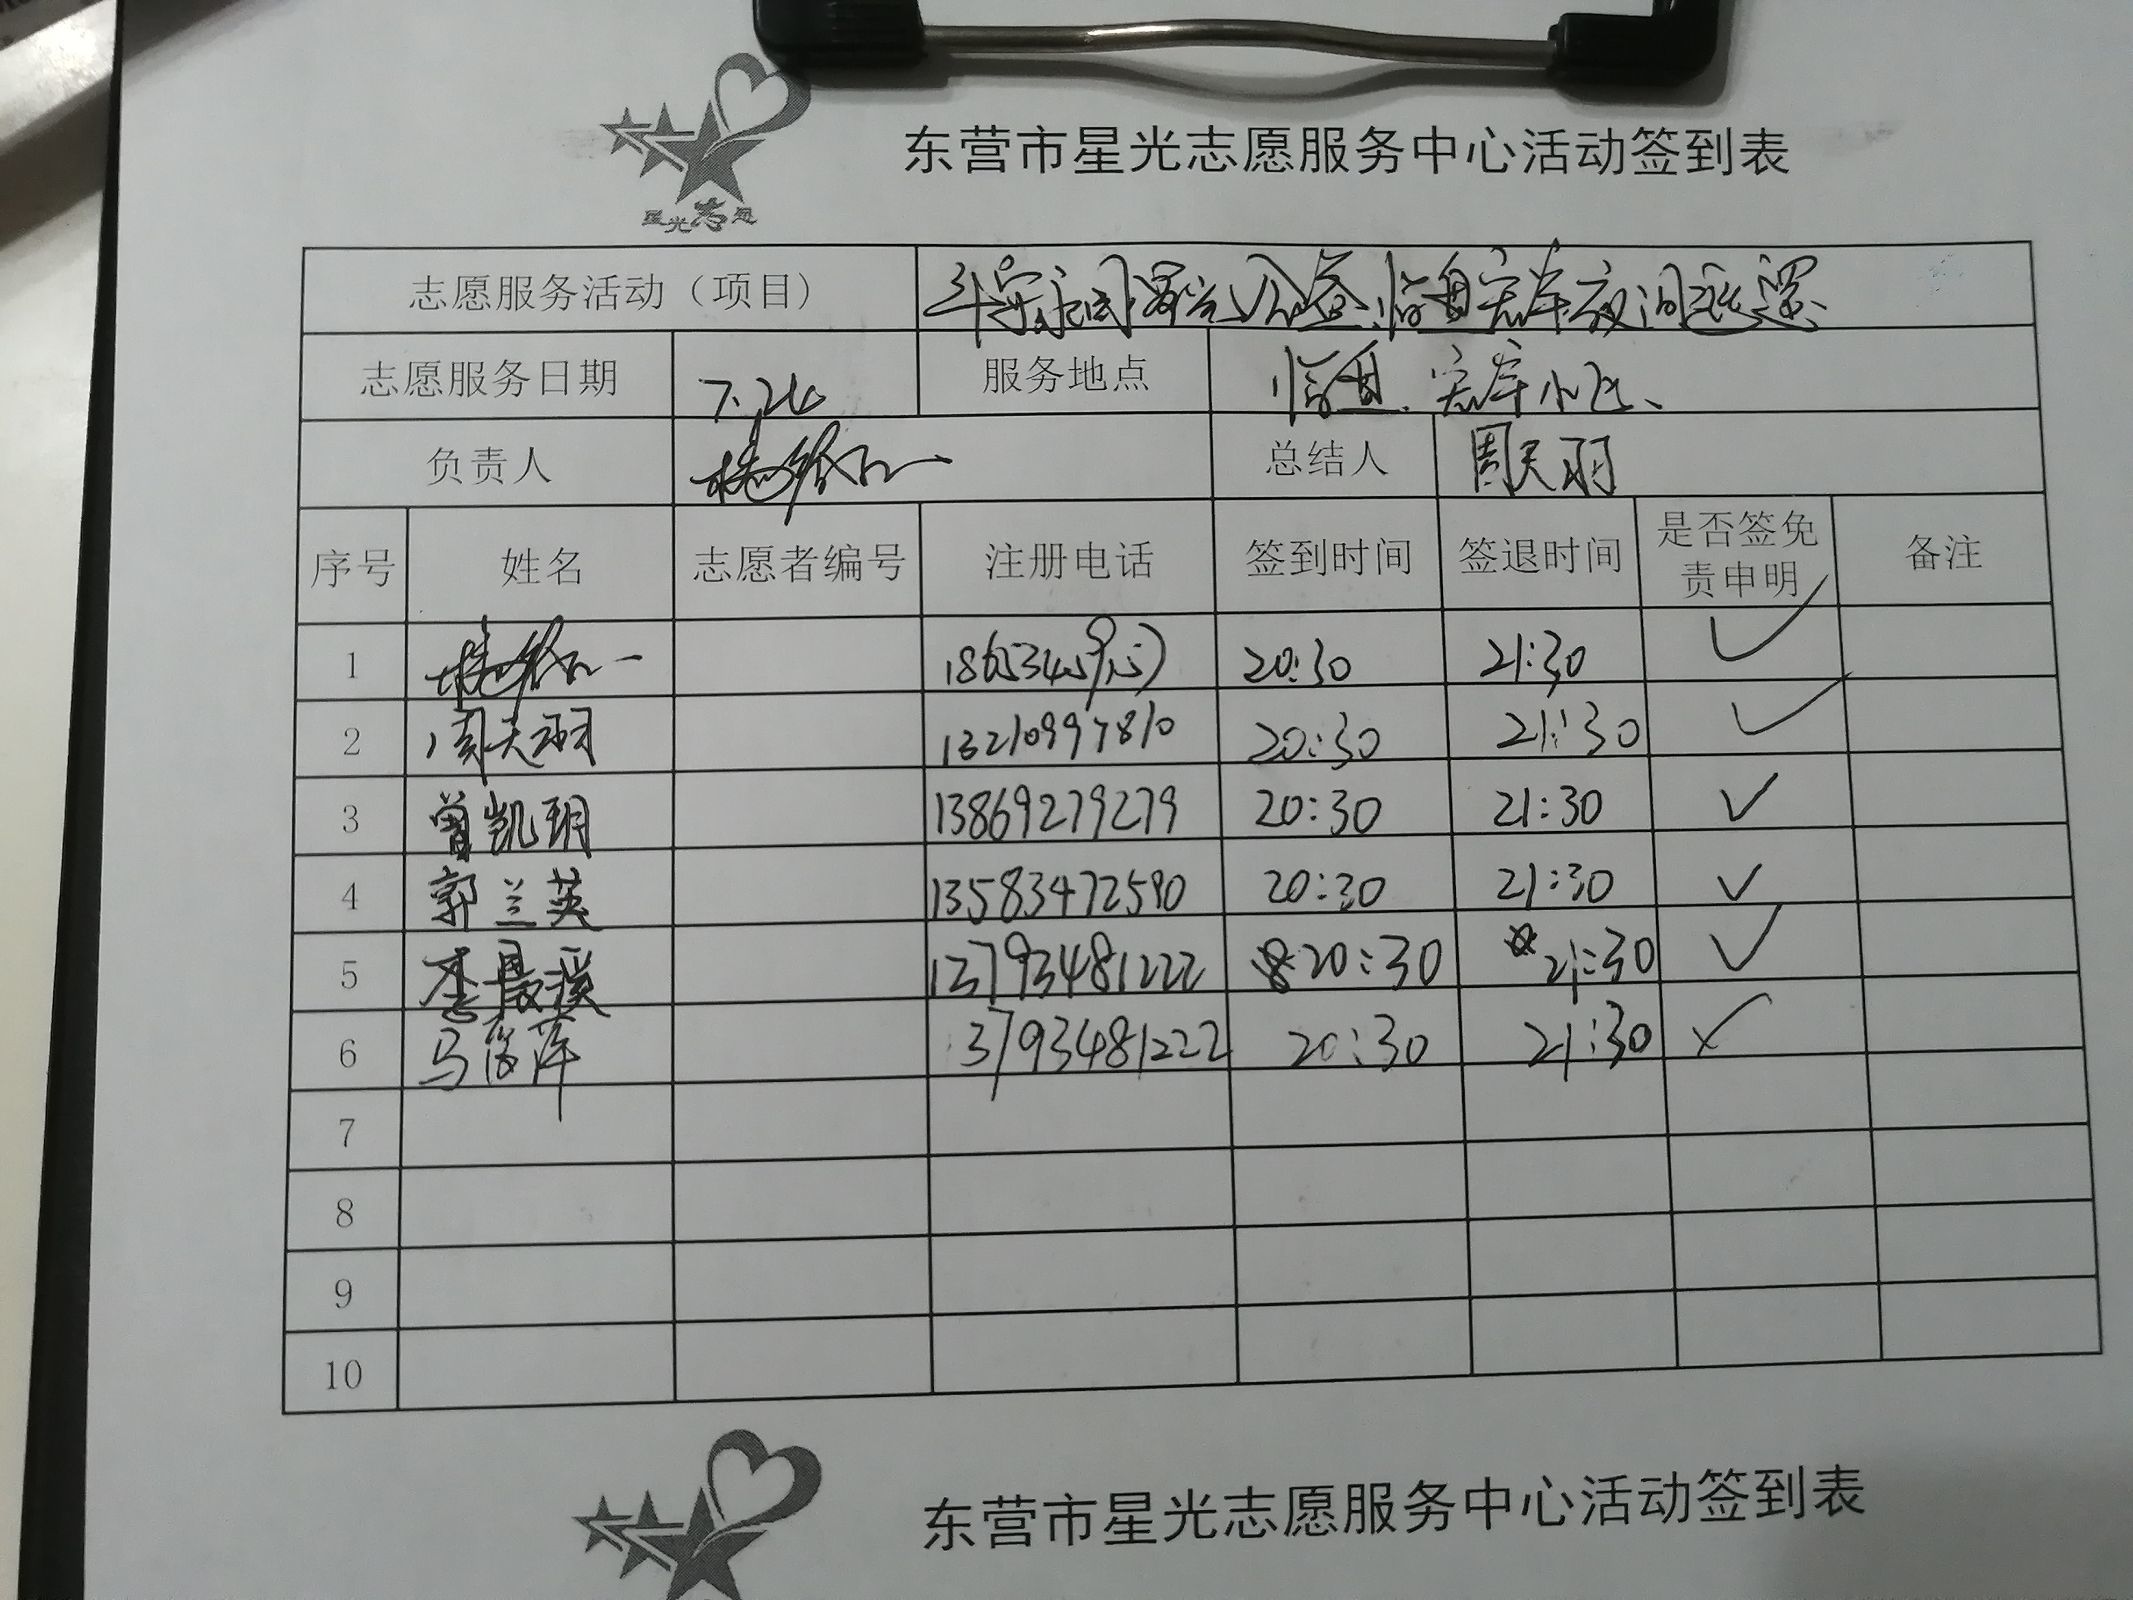 东营市星光志愿服务中心活动签到表
星光志愿
志愿服务活动（项目）
志愿服务日期 7.24 服务地点
负责人 总结人 周天羽
序号 姓名 志愿者编号 注册电话 签到时间 签退时间 是否签免责申明 备注
1 20:30 21:30 ✓
2 周天羽 13210997810 20:30 21:30 ✓
3 曾凯玥 13869279279 20:30 21:30 ✓
4 郭兰英 13583472590 20:30 21:30 ✓
5 李晨溪 13793481222 20:30 21:30 ✓
6 马 3793481222 20:30 21:30
7
8
9
10
东营市星光志愿服务中心活动签到表